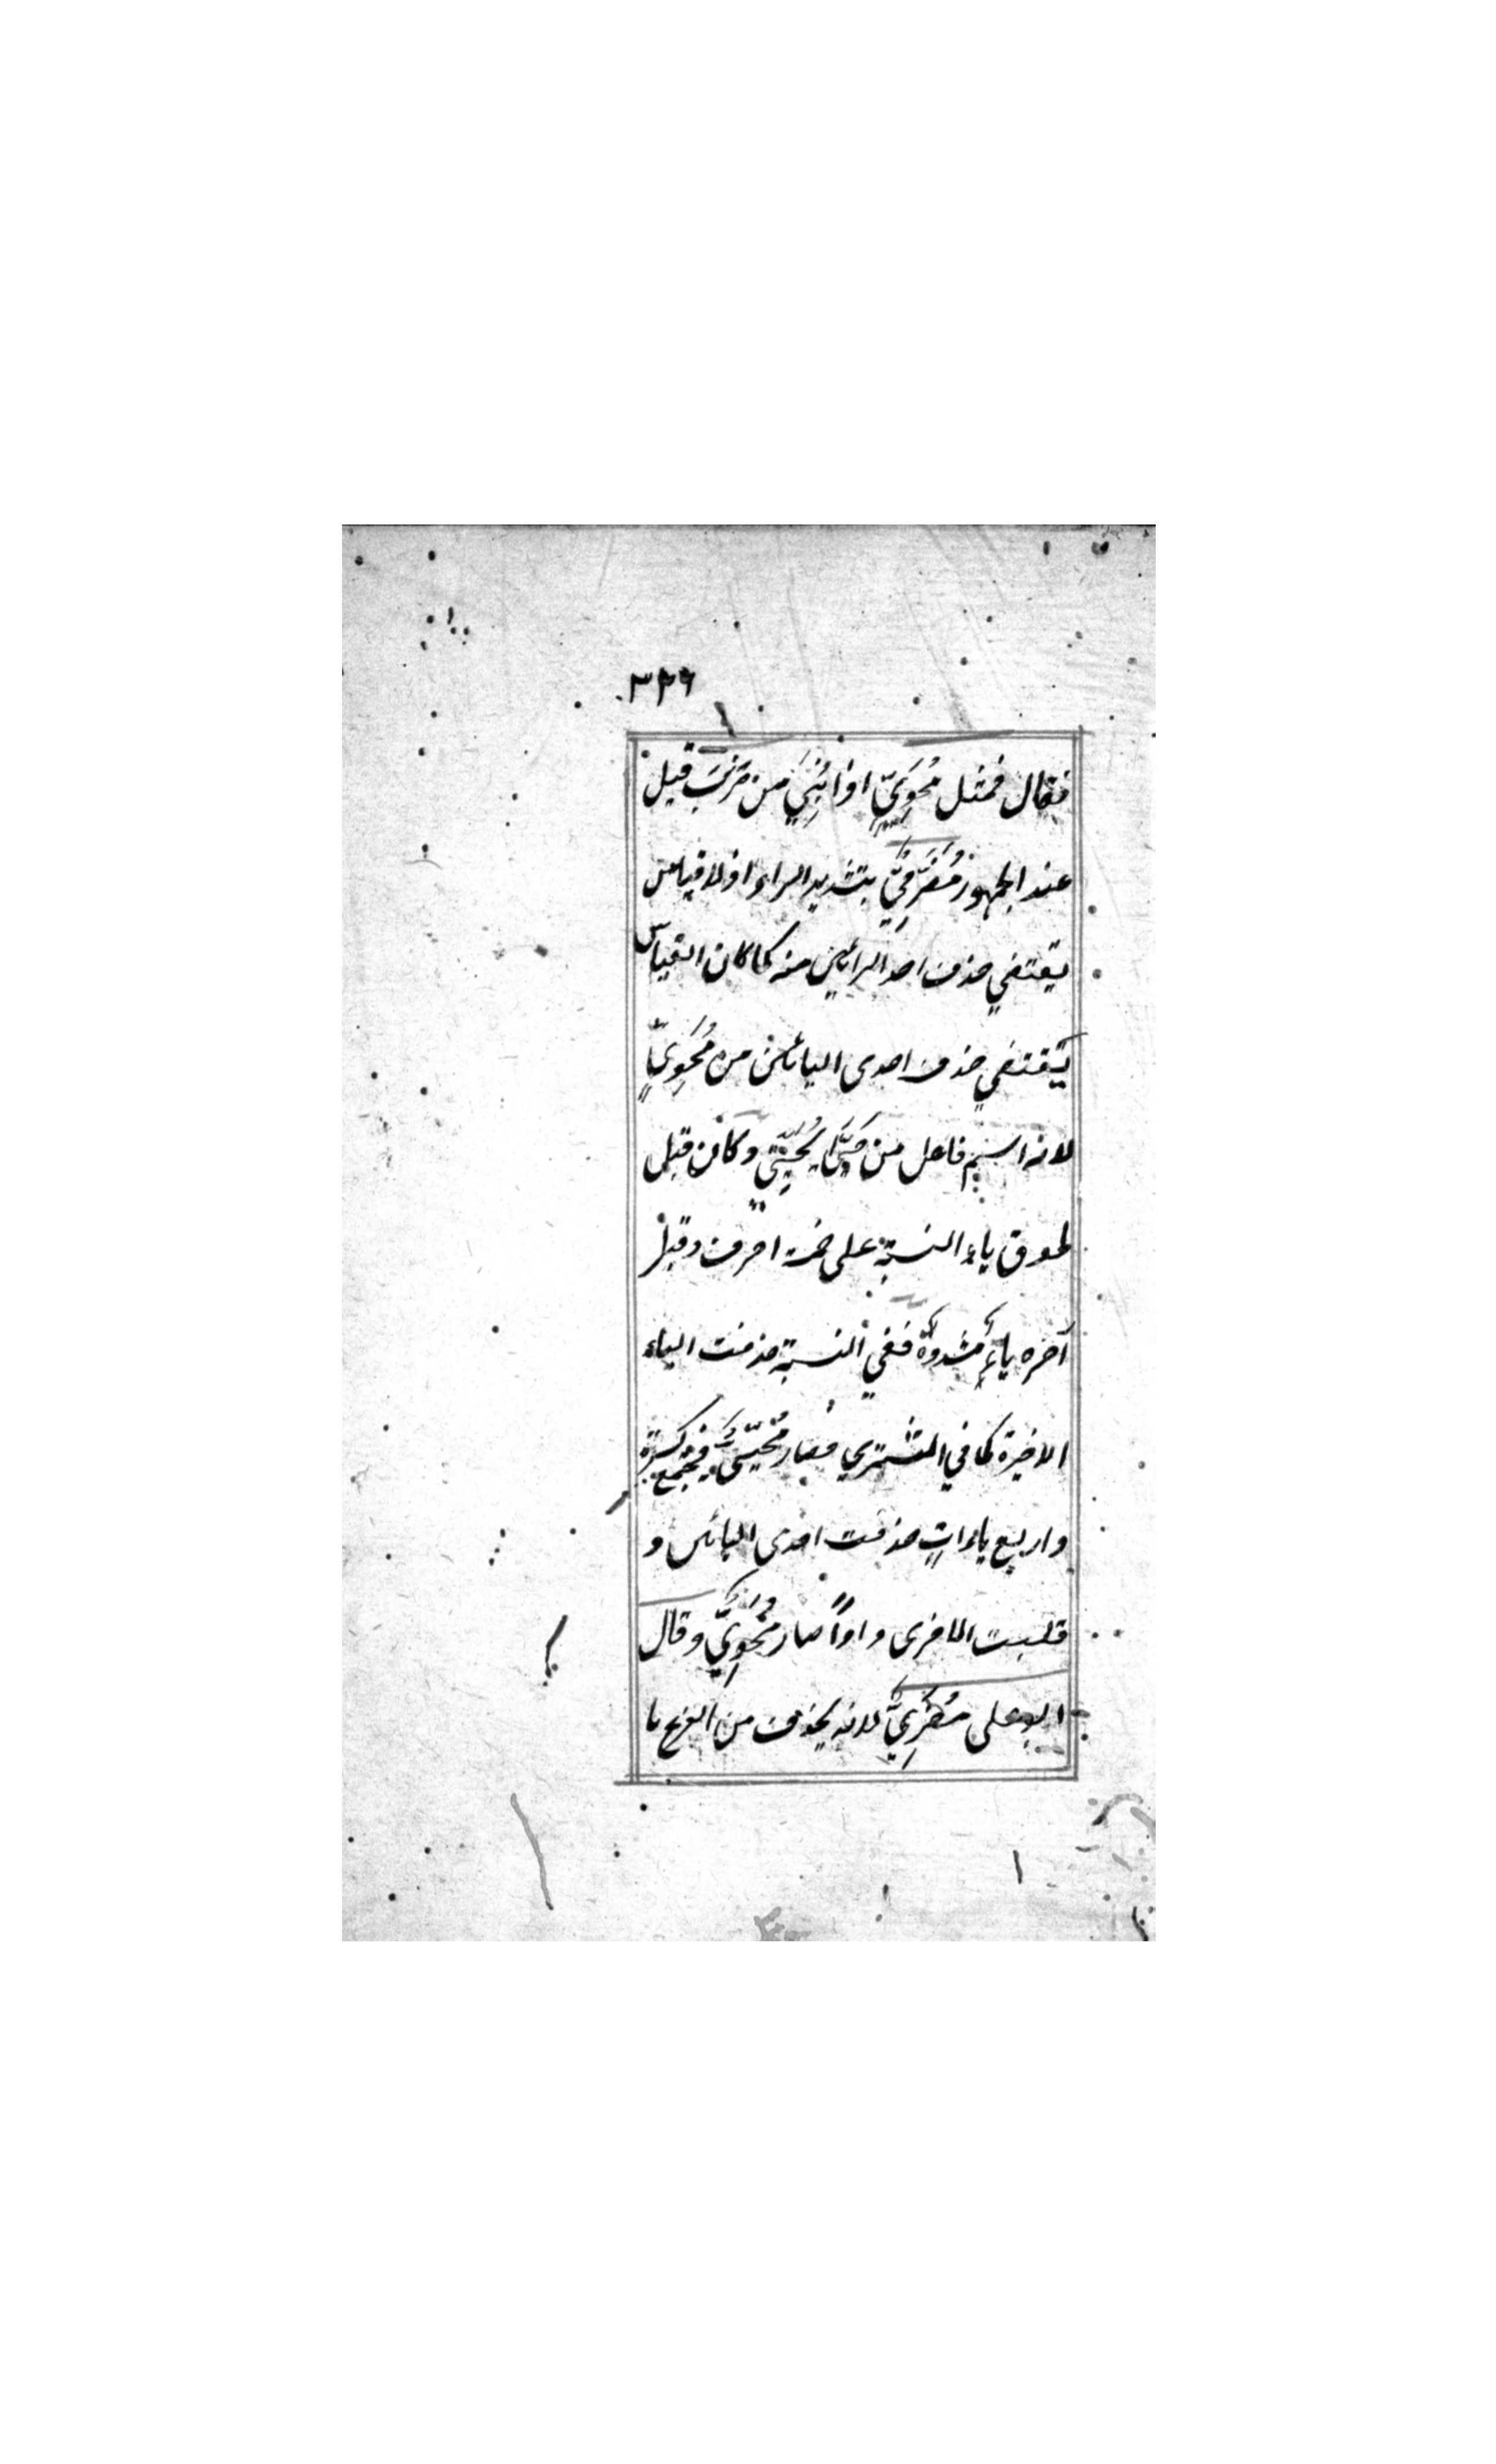 ٣٢٦
فقال فمثل مُحَوِيٍّ اذا بُنِيَ من ضَرَبَ قيل
عند الجمهور مُضَرِّبِيٌّ بتشديد الراء اذ لا قياس
يقتضي حذف احد الرائين منه كما كان القياس
يقتضي حذف احدى اليائين من مُحَوِيٍّ
لانه اسم فاعل من حَيَّى يُحَيِّي وكان قبل
لحوق ياء النسبة على خمسة احرف وقبل
آخره ياءٌ مشددة ففي النسبة حذفت الياء
الاخيرة كما في المشتري فصار مُحَيِّيٌّ فيجتمع كسرة
واربع ياءات حذفت احدى اليائين و
قلبت الاخرى واواً صار مُحَوِيٌّ وقال
ابو علي مُضَرِيٌّ لانه يحذف من الفرع ما